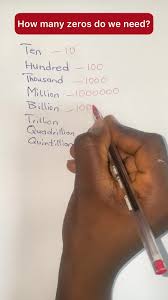 How many zeros do we need?
Ten - 10
Hundred - 100
Thousand - 1000
Million - 1000000
Billion - 100
Trillion
Quadrillion
Quintillion